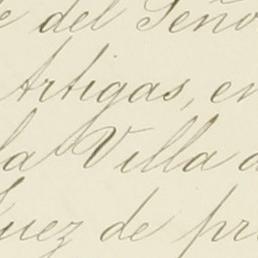 e del Seño
Artigas, en
la Villa d
Juez de pri